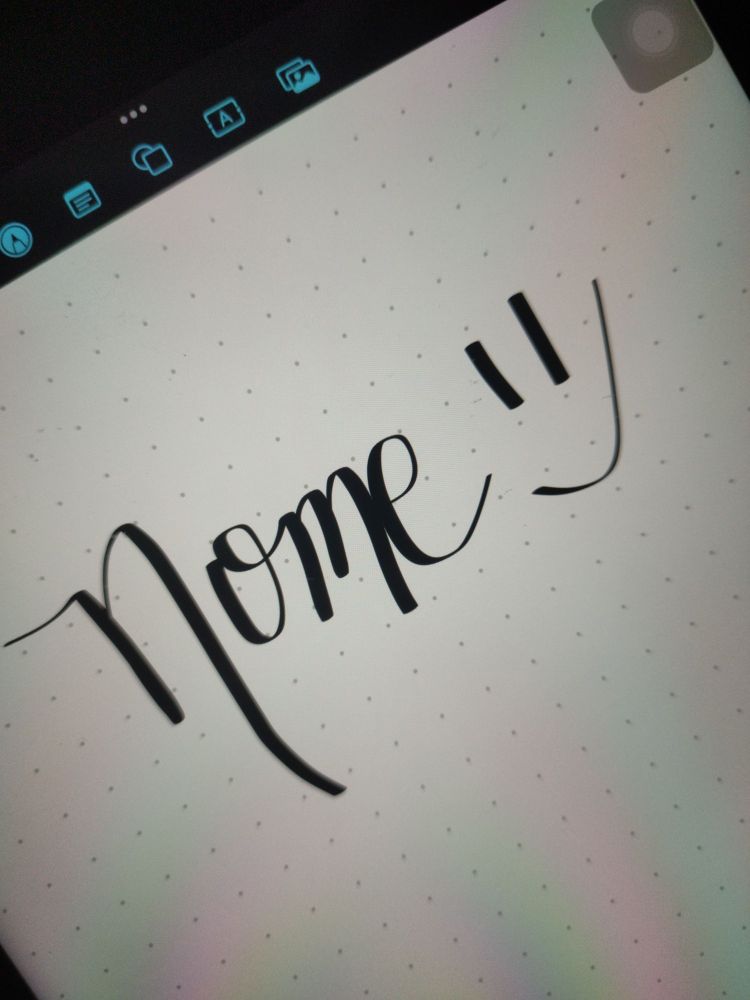 Nome ツ